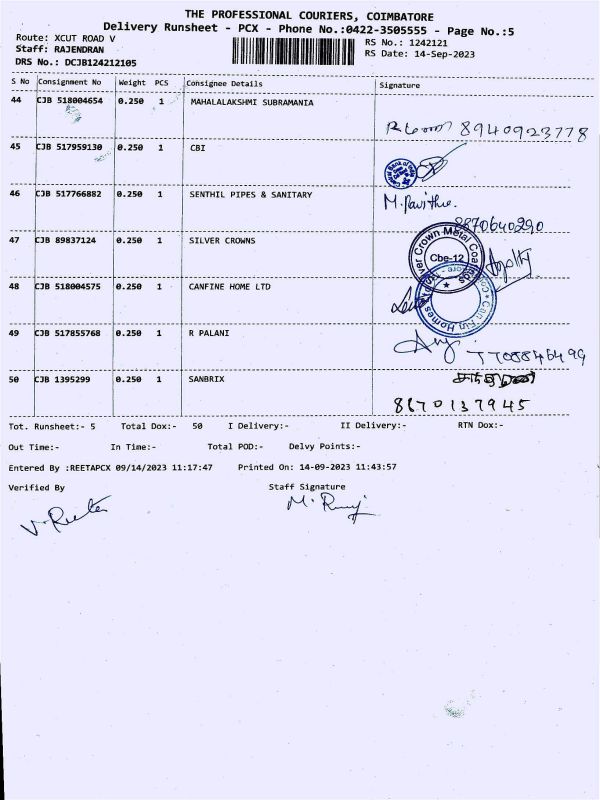 THE PROFESSIONAL COURIERS, COIMBATORE
Delivery Runsheet - PCX - Phone No.:0422-3505555 - Page No.:5
Route: XCUT ROAD V
RS No.: 1242121
Staff: RAJENDRAN
RS Date: 14-Sep-2023
DRS No.: DCJB124212105
S No Consignment No Weight PCS Consignee Details Signature
44 CJB 518004654 0.250 1 MAHALALAKSHMI SUBRAMANIA
8940923778
45 CJB 517959130 0.250 1 CBI
46 CJB 517766882 0.250 1 SENTHIL PIPES & SANITARY M. Pavithra.
8870640290
47 CJB 89837124 0.250 1 SILVER CROWNS
Silver Crown Metal Coatings
Cbe-12
48 CJB 518004575 0.250 1 CANFINE HOME LTD
Can Fin Homes
49 CJB 517855768 0.250 1 R PALANI
7708846499
50 CJB 1395299 0.250 1 SANBRIX
8870137945
Tot. Runsheet:- 5 Total Dox:- 50 I Delivery:- II Delivery:- RTN Dox:-
Out Time:- In Time:- Total POD:- Delvy Points:-
Entered By :REETAPCX 09/14/2023 11:17:47 Printed On: 14-09-2023 11:43:57
Verified By Staff Signature
V. Reeta